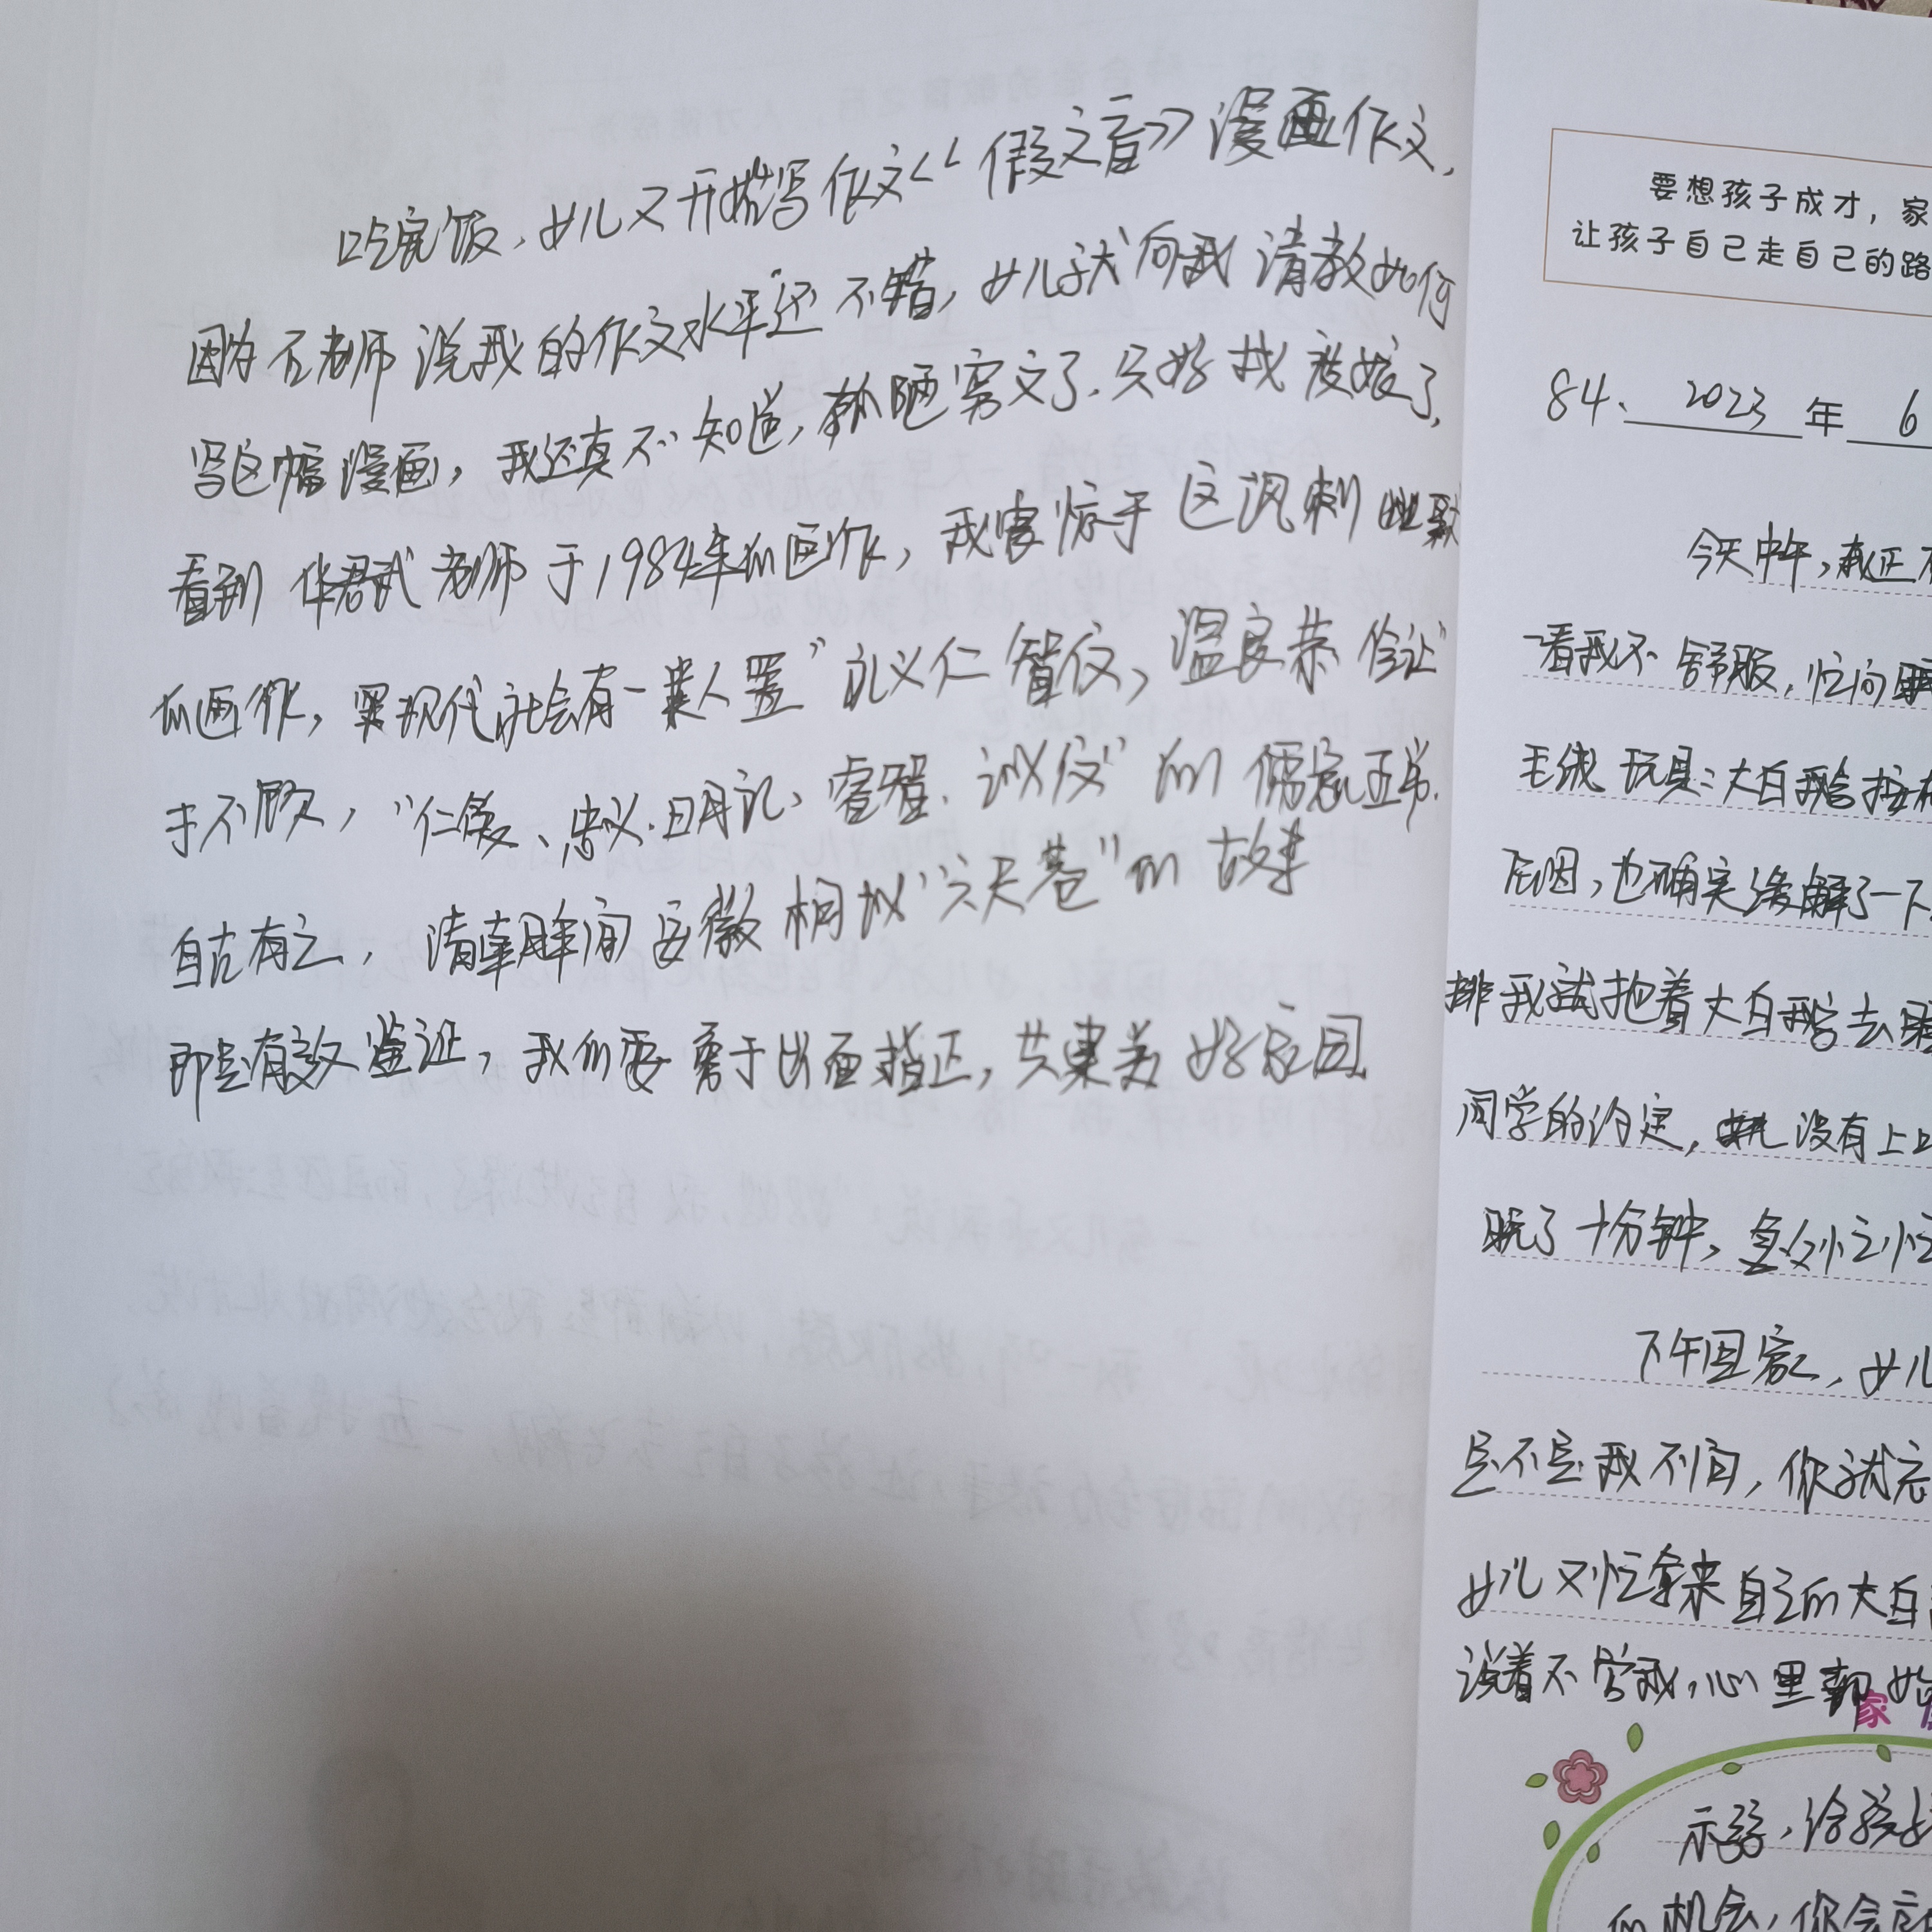 吃完饭，女儿又开始写作文《假文盲》漫画作文，
因为石老师说我的作文水平还不错，女儿就向我请教如何
写这幅漫画，我还真不知道，孤陋寡闻了，只好找度娘了，
看到华君武老师于1984年的画作，我震惊于这讽刺幽默
的画作，现代社会有一类人置"礼义仁智信，温良恭俭让"
于不顾，"仁德、忠义、明礼、睿智、诚信"的儒家
自古有之，清康熙年间安徽桐城"六尺巷"的故事
即是有效鉴证，我们要勇于出面指正，共建美好家园。
要想孩子成才，家
让孩子自己走自己的路
84、2023年6
今天中午，我正
一看我不舒服，忙问
毛绒玩具：大白鹅给
后因，也确实缓解了一下
排我试抱着大白鹅去
同学的约定，没有上
晚了十分钟，急匆忙忙
下午回家，女儿
是不是我不问，你就
女儿又忙拿来自己的大白
说着不管我，心里却
家
示弱，给孩子
的机会，你会